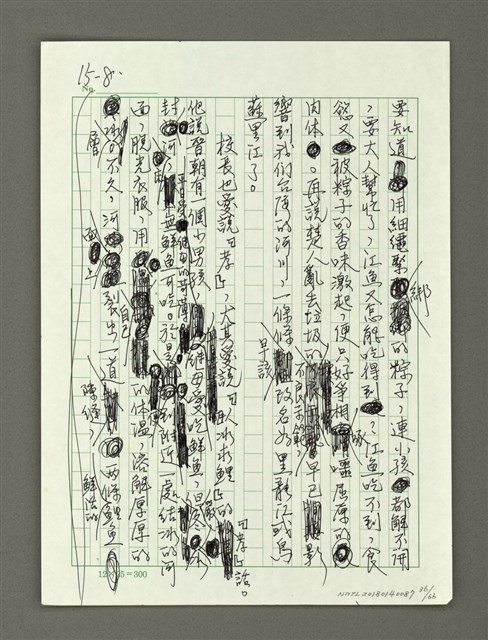 15-8.
No.
要知道用細繩緊綁的粽子，連小孩都解不開
，要大人幫忙了，江魚又怎能吃得到？江魚吃不到，食
慾又被粽子的香味激起，便只好爭相啃噬屈原的
肉体。再說楚人亂丟垃圾的不良示範，早已影
響到我們台灣的河川，一條條早該改名為黑龍江或烏
蘇里江了。
校長也愛說「孝」，尤其愛說「臥冰求鯉」的「孝」話。
他說晉朝有一個少男孩，繼母愛吃鮮魚，但冬天
封河，無鮮魚可吃。於是到附近一處結冰的河
面，脫光衣服，用自己的体溫溶解厚厚的
冰層不久，河面上裂出一道隙縫，兩條鮮活的鯉魚
12×25=300
NMTL20180140087